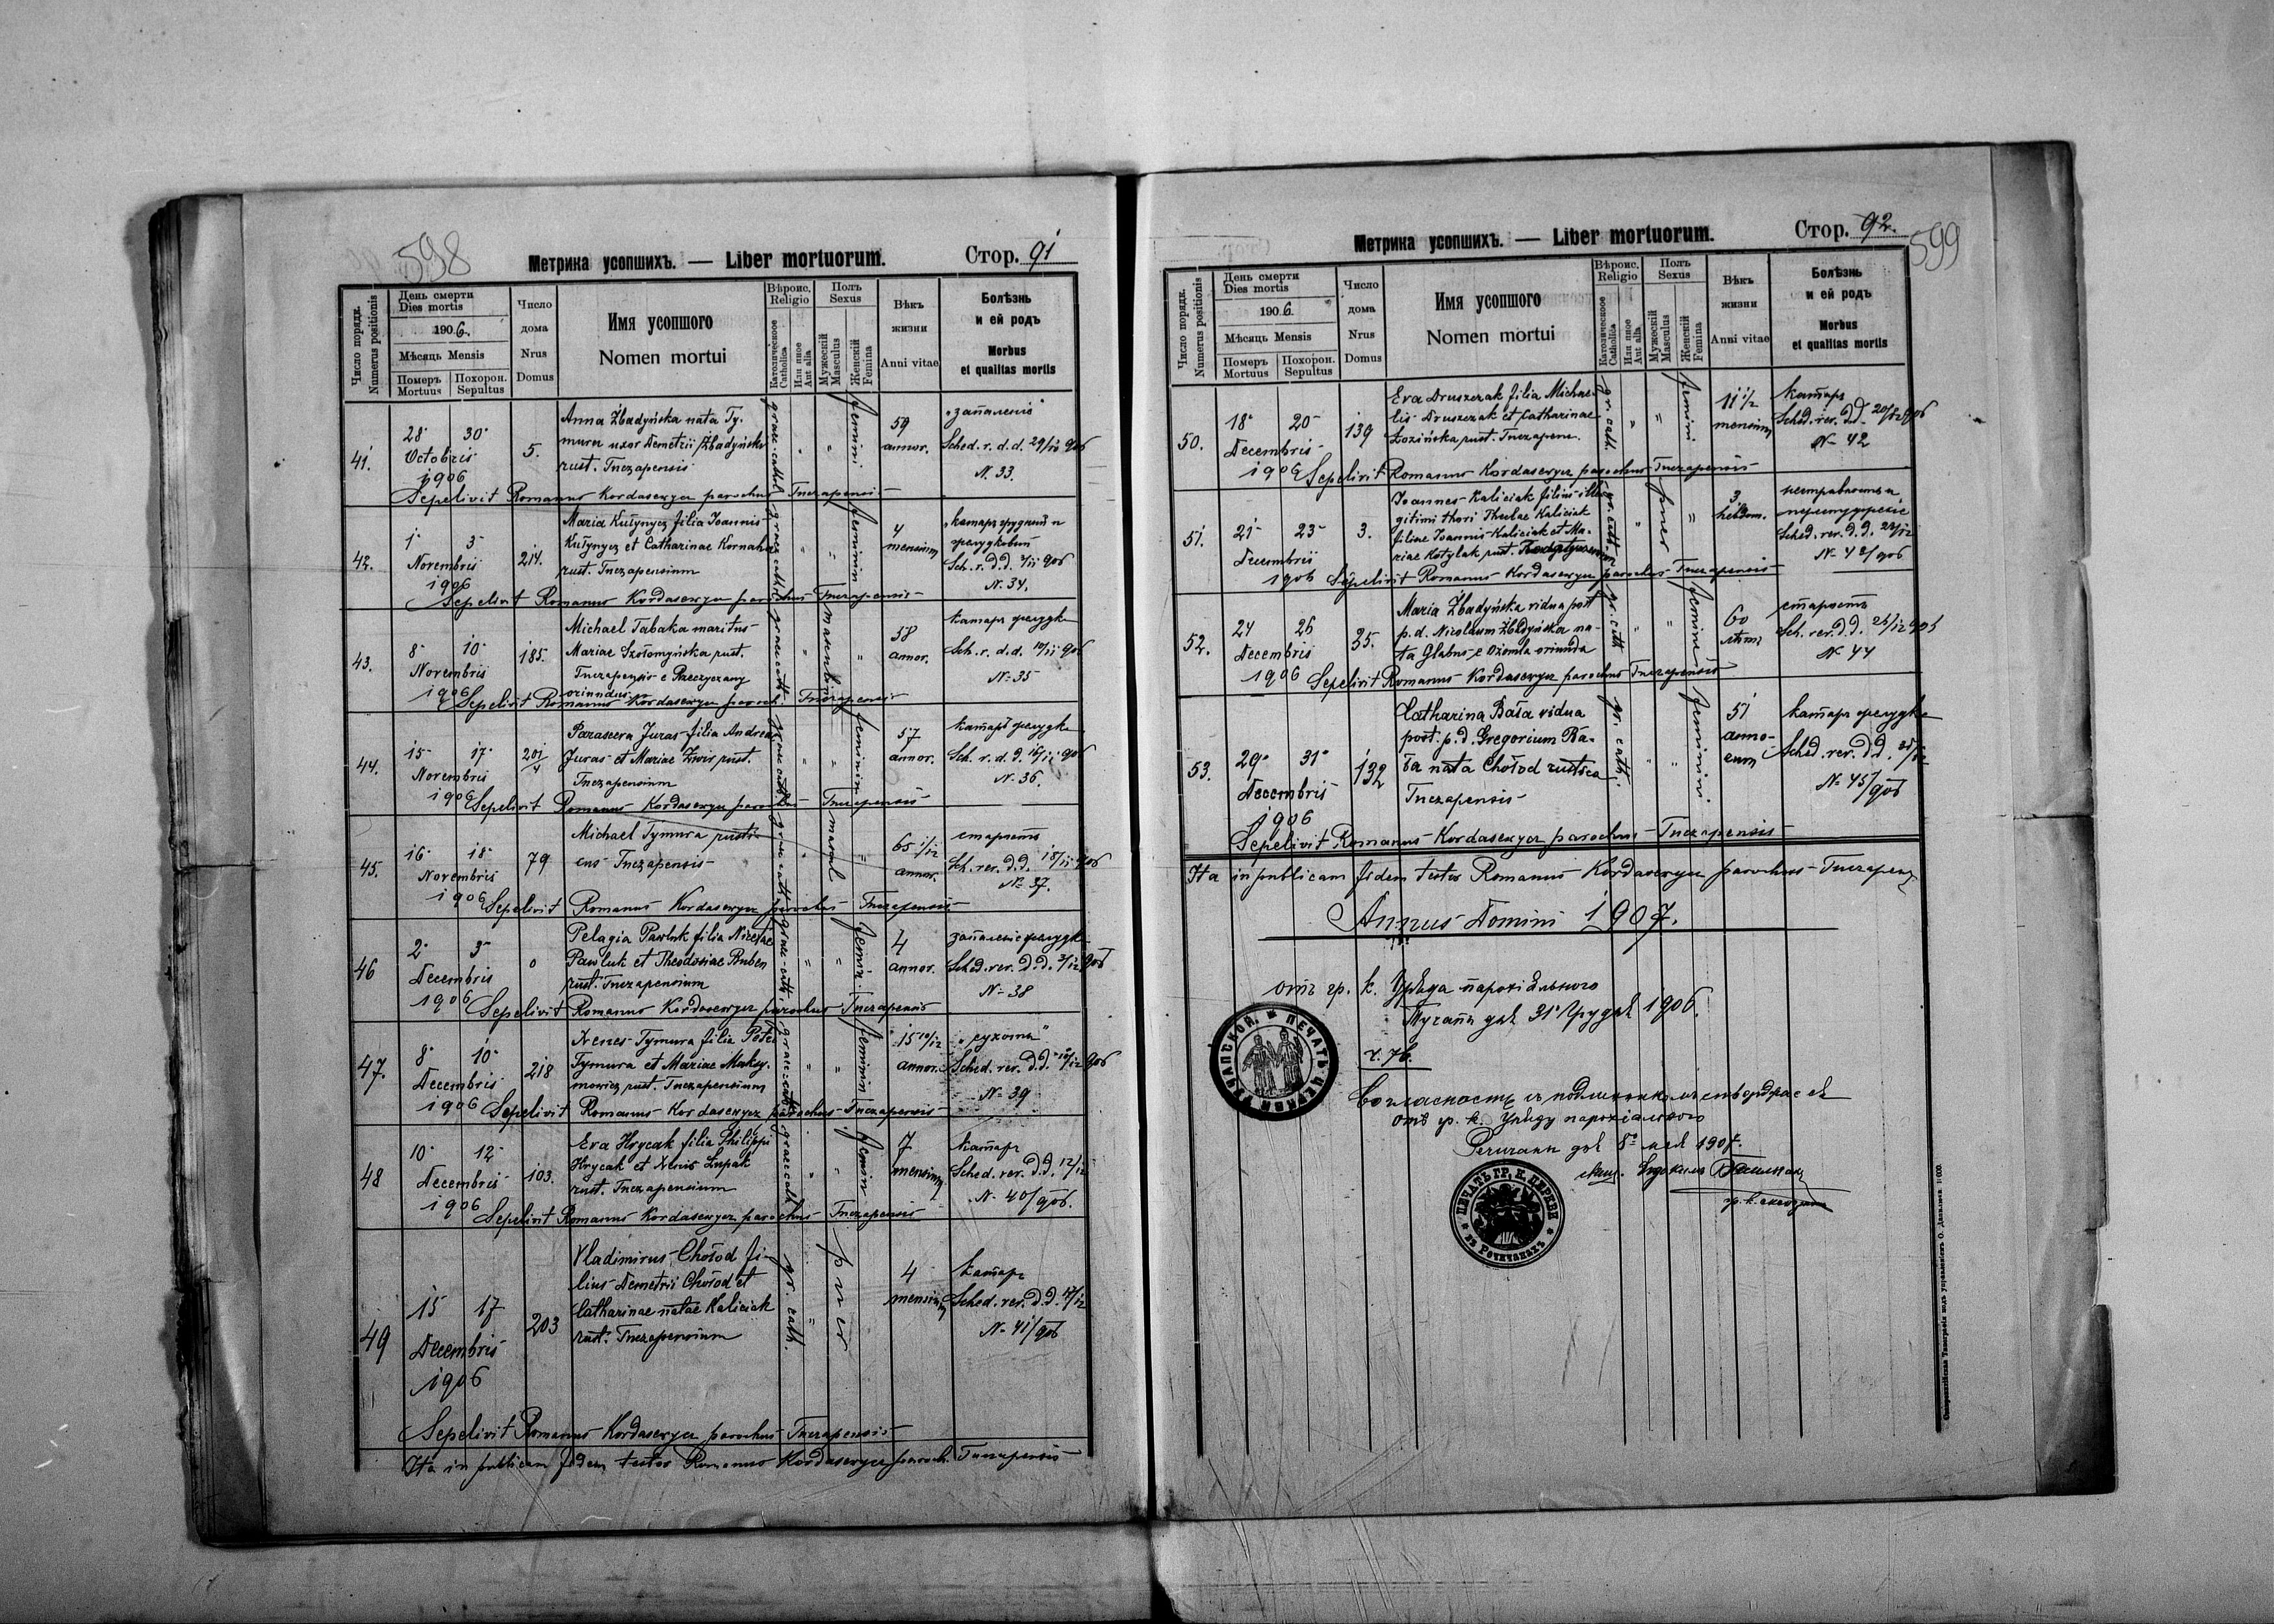 598
Метрика усопшихъ. — Liber mortuorum.
Стор. 91
Число порядк. Numerus positionis
День смерти
Dies mortis
1906.
Мѣсяць Mensis
Померъ Mortuus
Похорон. Sepultus
Число дома
Nrus Domus
Имя усопшого
Nomen mortui
Вѣроис. Religio
Католическое Catholica
Или иное Aut alia
Полъ Sexus
Мужескій Masculus
Женскій Femina
Вѣкъ жизни
Anni vitae
Болѣзнь и ей родъ
Morbus et qualitas mortis
41.
28 30
Octobris
1906
5.
Anna Żbadyńska nata Ty-
mura uxor Demetrii Żbadyński
rust. Tuczapensis
graec. cathol.
femini
59
annor.
"запаленіе"
Sched. r. d. d. 29/11 906
N. 33.
Sepelivit Romanus Kordasewycz parochus Tuczapensis
42.
1 3
Novembris
1906
214.
Maria Kułynycz filia Joannis
Kułynycz et Catharinae Kornaha
rust. Tuczapensium
graec. cathol.
feminin
4
mensium
Sch. r. d. d. 2/11 906
N. 34.
Sepelivit Romanus Kordasewycz parochus Tuczapensis
43.
8 10
Novembris
1906
185.
Michael Tabaka maritus
Mariae Szołomyńska rust.
Tuczapensis e
oriundus
graec. cath.
mascul
58
annor.
катаръ желудка
Sch. r. d. d. 10/11 906
N. 35
Sepelivit Romanus Kordasewycz paroch. Tuczapensis
44.
15 17
Novembris
1906
201/4
Parascera Juras filia Andreae
Juras et Mariae Zwir rust.
Tuczapensium
graec. cath.
feminin
57
annor.
катаръ желудка
Sch. r. d. d. 16/11 906
N. 36.
Sepelivit Romanus Kordasewycz parochus Tuczapensis
45.
16 18
Novembris
1906
79
Michael Tymura rusti-
cus Tuczapensis
graec. cath.
mascul
65 1/12
annor.
старость
Sch. rer. d. d. 18/11 906
N. 37.
Sepelivit Romanus Kordasewycz parochus Tuczapensis
46
2 3
Decembris
1906
0
Pelagia Pawluk filia Nicetae
Pawluk et Theodosiae Ruben
rust. Tuczapensium
graec. cath.
femin.
4
annor.
запаленіе желудка
Sched. rer. d. d. 3/12 906
N. 38
Sepelivit Romanus Kordasewycz parochus Tuczapensis
47.
8 10
Decembris
1906
218
Xenes Tymura filia Petri
Tymura et Mariae Maksy-
mowicz rust. Tuczapensium
graec. cath.
feminin
15 10/12
annor.
"сухоты"
Sched. rer. d. d. 10/12 906
N. 39
Sepelivit Romanus Kordasewycz parochus Tuczapensis
48
10 12
Decembris
1906
103.
Eva Hrycak filia Philippi
Hrycak et Xenis Łupak
rust. Tuczapensium
graec. cath.
feminin
7
mensium
катаръ
Sched. rer. d. d. 12/12
N. 40/906.
Sepelivit Romanus Kordasewycz parochus Tuczapensis
49
15 17
Decembris
1906
203
Vladimirus Chołod fi-
lius Demetrii Chołod et
Catharinae natae Kaliciak
rust. Tuczapensium
gr. cath.
puer
4
mensium
катаръ
Sched. rer. d. d. 17/12
N. 41/906
Sepelivit Romanus Kordasewycz parochus Tuczapensis
Ita in publicam fidem testor Romanus Kordasewycz paroch. Tuczapensis
599
Метрика усопшихъ. — Liber mortuorum.
Стор. 92.
Число порядк. Numerus positionis
День смерти
Dies mortis
1906.
Мѣсяць Mensis
Померъ Mortuus
Похорон. Sepultus
Число дома
Nrus Domus
Имя усопшого
Nomen mortui
Вѣроис. Religio
Католическое Catholica
Или иное Aut alia
Полъ Sexus
Мужескій Masculus
Женскій Femina
Вѣкъ жизни
Anni vitae
Болѣзнь и ей родъ
Morbus et qualitas mortis
50.
18 20
Decembris
1906
139
Eva Druszczak filia Michae-
lis Druszczak et Catharinae
Łozińska rust. Tuczapens.
gr. cath.
femini
11 1/2
mensium
катаръ
Sched. rer. d. d. 20/12 906
N. 42
Sepelivit Romanus Kordasewycz parochus Tuczapensis
51.
21 23
Decembris
1906
3.
Joannes Kaliciak filius ille-
gitimi thori Theclae Kaliciak
filiae Joannis Kaliciak et Ma-
riae Kotylak rust.
gr. cath.
puer
3
hebdom.
Sched. rer. d. d. 22/12
N. 43/906
Sepelivit Romanus Kordasewycz parochus Tuczapensis
52.
24 26
Decembris
1906
35.
Maria Żbadyńska vidua post
p. d. Nicolaum Żbadyńska na-
ta Glabus e Ożomla oriunda
gr. cath
feminini
60
старость
Sch. rer. d. d. 26/12 906
N. 44
Sepelivit Romanus Kordasewycz parochus Tuczapensis
53.
29 31
Decembris
1906
132
Catharina Bała vidua
post. p. d. Gregorium Ba-
ła nata Chołod rustica
Tuczapensis
gr. cath.
feminini
51
anno-
rum
катаръ желудка
Sched. rer. d. d. 31/12
N. 45/906
Sepelivit Romanus Kordasewycz parochus Tuczapensis
Ita in publicam fidem testor Romanus Kordasewycz parochus Tuczapens.
Annus Domini 1907.
отъ гр. к. Уряда парохіяльного
Тучапы дня 31 Грудня 1906.
ч. 76.
Согласность съ подлинникомъ створджаеся
отъ гр. к. Уряду парохіяльного
дня 8 мая 1907.
ПЕЧАТЬ ГР. К. ЦЕРКВИ
въ Рочичанахъ